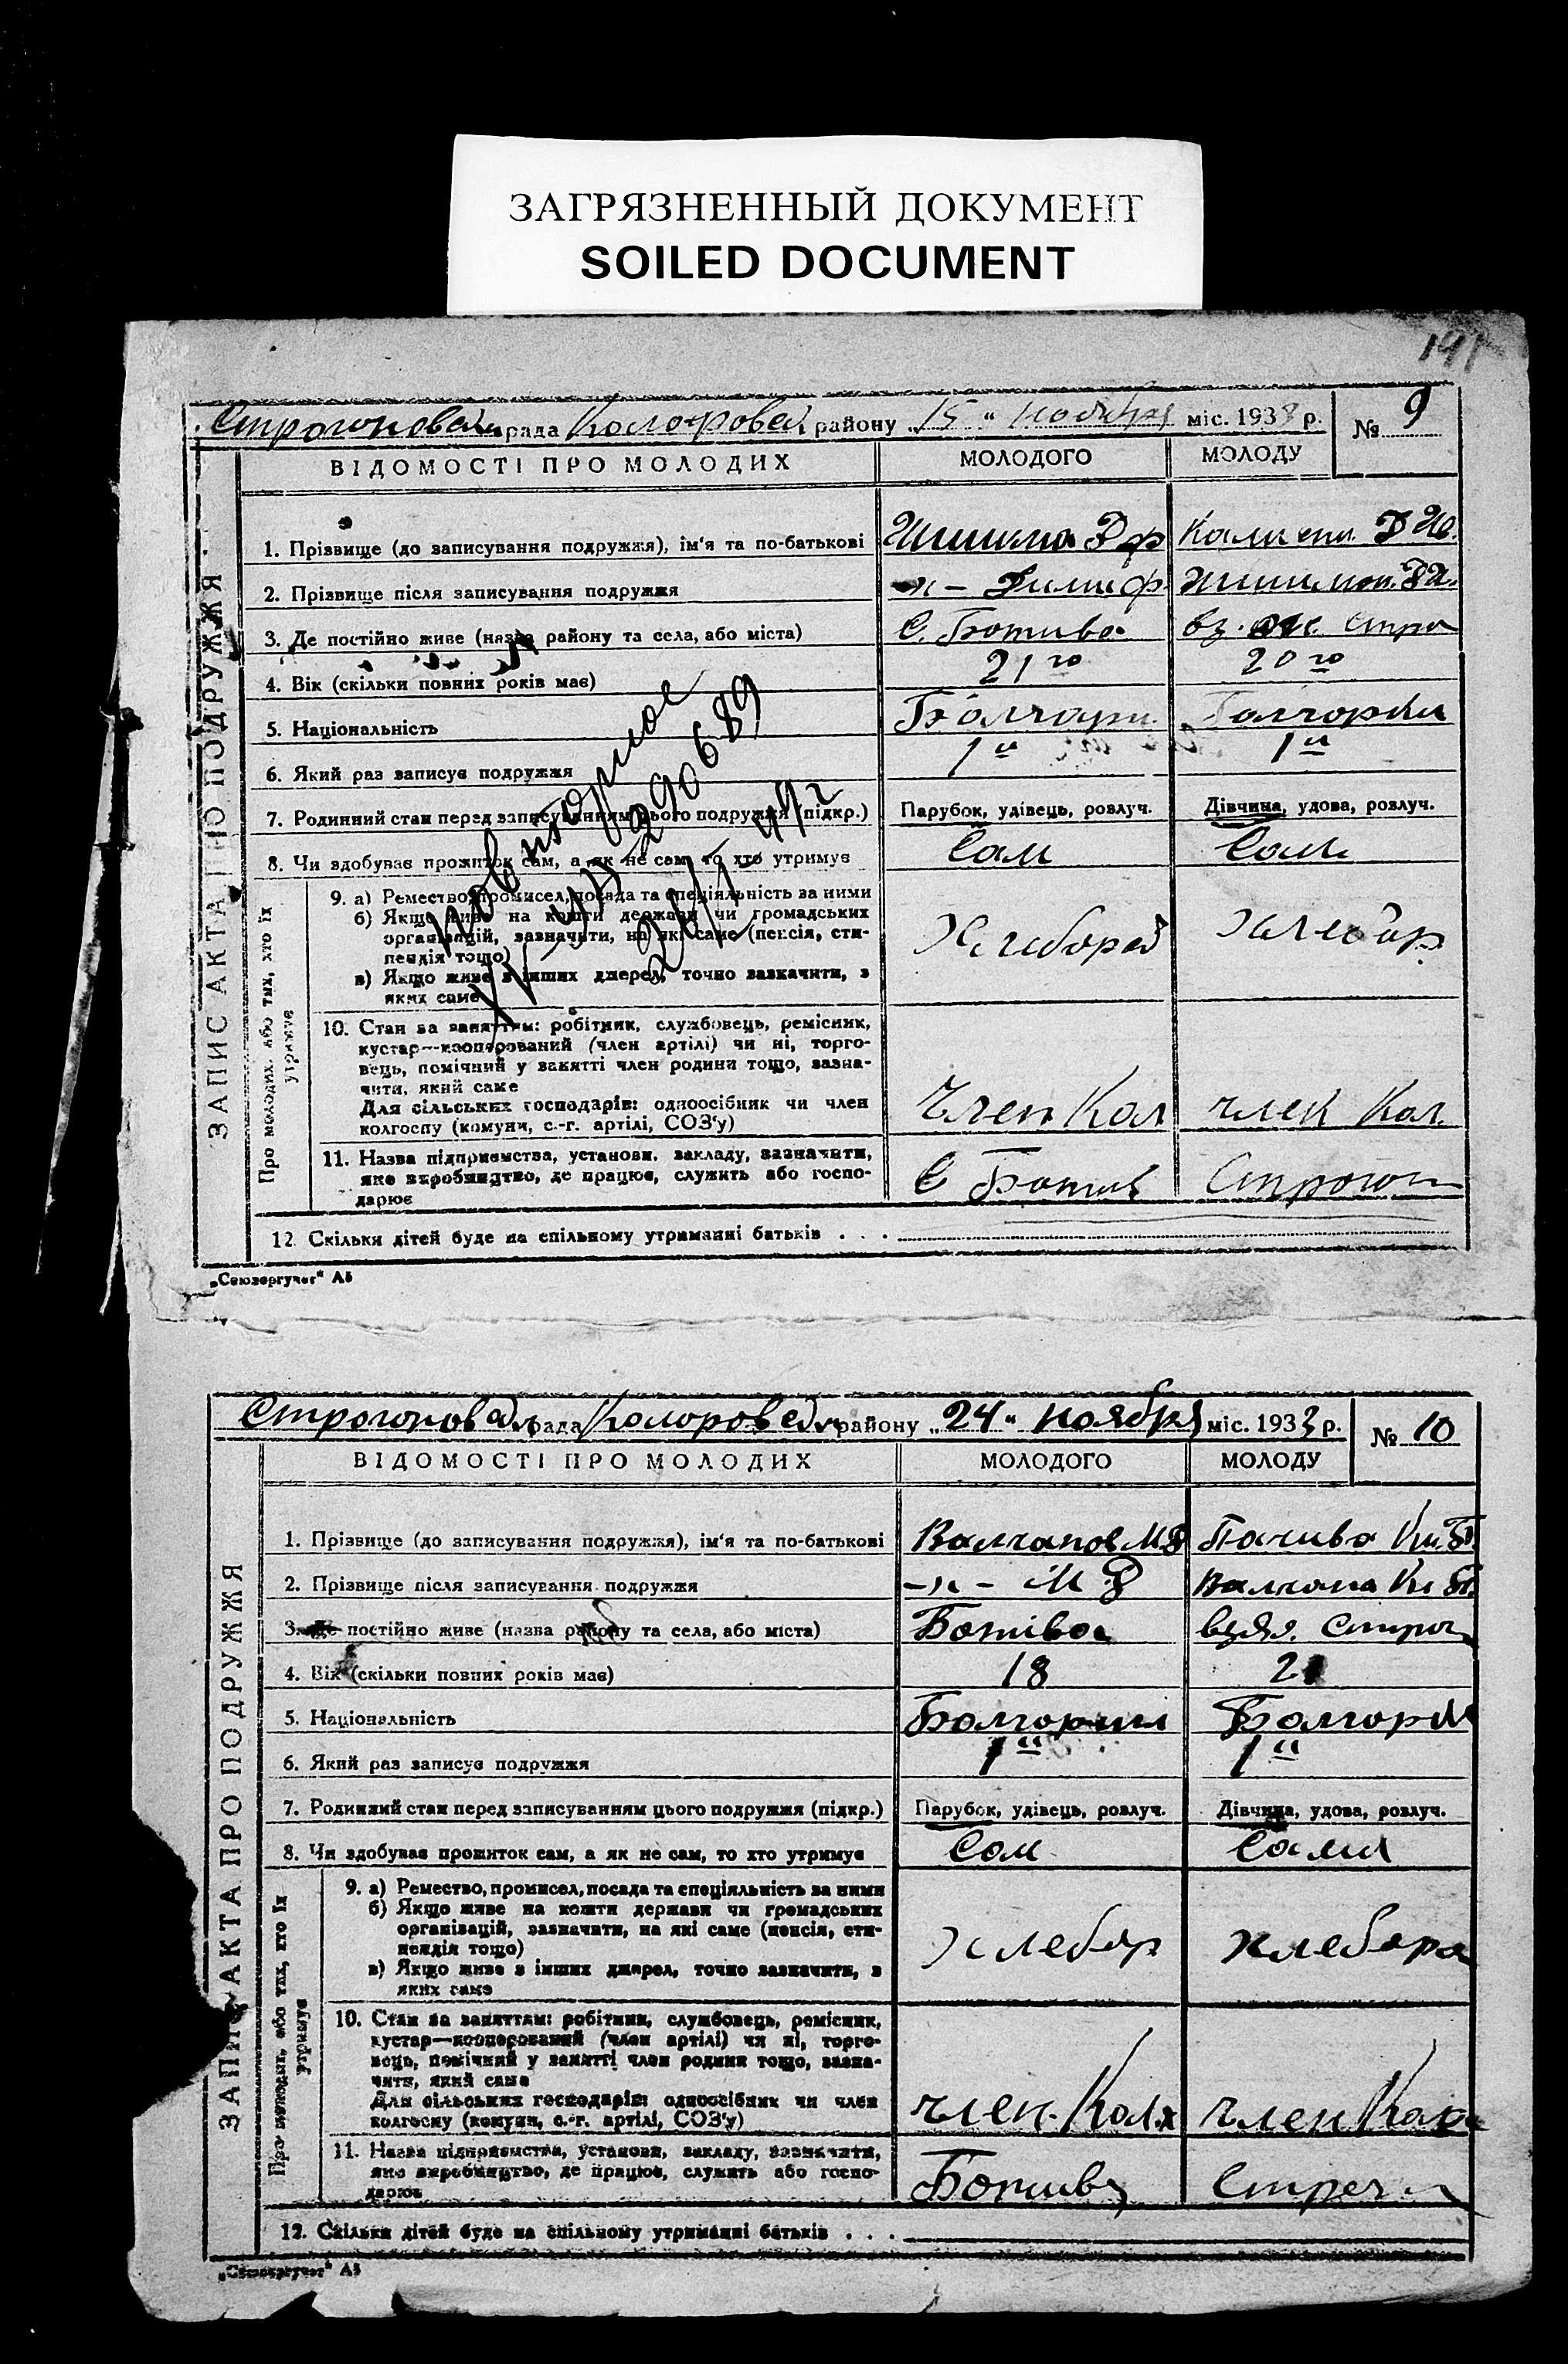 ЗАГРЯЗНЕННЫЙ ДОКУМЕНТ
SOILED DOCUMENT
рада району „15“ ноября міс. 193 р. № 9
ЗАПИС АКТА ПРО ПОДРУЖЖЯ
ВІДОМОСТІ ПРО МОЛОДИХ МОЛОДОГО МОЛОДУ
1. Прізвище (до записування подружжя), ім'я та по-батькові
2. Прізвище після записування подружжя
3. Де постійно живе (назва району та села, або міста) С. Ботиво
4. Вік (скільки повних років має) 21 го 20 го
5. Національність Болгари
6. Який раз записує подружжя 1й 1й
7. Родинний стан перед записуванням цього подружжя (підкр.) Парубок, удівець, розлуч. Дівчина, удова, розлуч.
8. Чи здобуває прожиток сам, а як не сам, то хто утримує Сам Сам
Про молодих, або тих, хто їх утримує
9. а) Ремество, промисел, посада та спеціяльність за ними
б) Якщо живе на кошти держави чи громадських
організацій, зазначити, на які саме (пенсія, сти-
пендія тощо)
в) Якщо живе з інших джерел, точно зазначити, з
яких саме
Хлебороб Хлебор
10. Стан за заняттям: робітник, службовець, ремісник,
кустар—кооперований (член артілі) чи ні, торго-
вець, помічний у занятті член родини тощо, зазна-
чити, який саме
Для сільських господарів: одноосібник чи член
колгоспу (комуни, с.-г. артілі, СОЗ'у)
Член Кол член Кол.
11. Назва підприємства, установи, закладу, зазначити,
яке виробництво, де працює, служить або госпо-
дарює
С Ботив Строгон
12. Скільки дітей буде на спільному утриманні батьків . . .
повторное
290689
„Союзоргучет“ А5
рада району „24“ ноября міс. 1933 р. № 10
ЗАПИС АКТА ПРО ПОДРУЖЖЯ
ВІДОМОСТІ ПРО МОЛОДИХ МОЛОДОГО МОЛОДУ
1. Прізвище (до записування подружжя), ім'я та по-батькові Валчанов
2. Прізвище після записування подружжя
3. Де постійно живе (назва району та села, або міста) Ботіво
4. Вік (скільки повних років має) 18
5. Національність
6. Який раз записує подружжя 1й 1й
7. Родинний стан перед записуванням цього подружжя (підкр.) Парубок, удівець, розлуч. Дівчина, удова, розлуч.
8. Чи здобуває прожиток сам, а як не сам, то хто утримує Сам Сама
Про молодих, або тих, хто їх утримує
9. а) Ремество, промисел, посада та спеціяльність за ними
б) Якщо живе на кошти держави чи громадських
організацій, зазначити, на які саме (пенсія, сти-
пендія тощо)
в) Якщо живе з інших джерел, точно зазначити, з
яких саме
Хлебор Хлеборо
10. Стан за заняттям: робітник, службовець, ремісник,
кустар—кооперований (член артілі) чи ні, торго-
вець, помічний у занятті член родини тощо, зазна-
чити, який саме
Для сільських господарів: одноосібник чи член
колгоспу (комуни, с.-г. артілі, СОЗ'у)
член. Колх член
11. Назва підприємства, установи, закладу, зазначити,
яке виробництво, де працює, служить або госпо-
дарює
12. Скільки дітей буде на спільному утриманні батьків . . .
„Союзоргучет“ А5